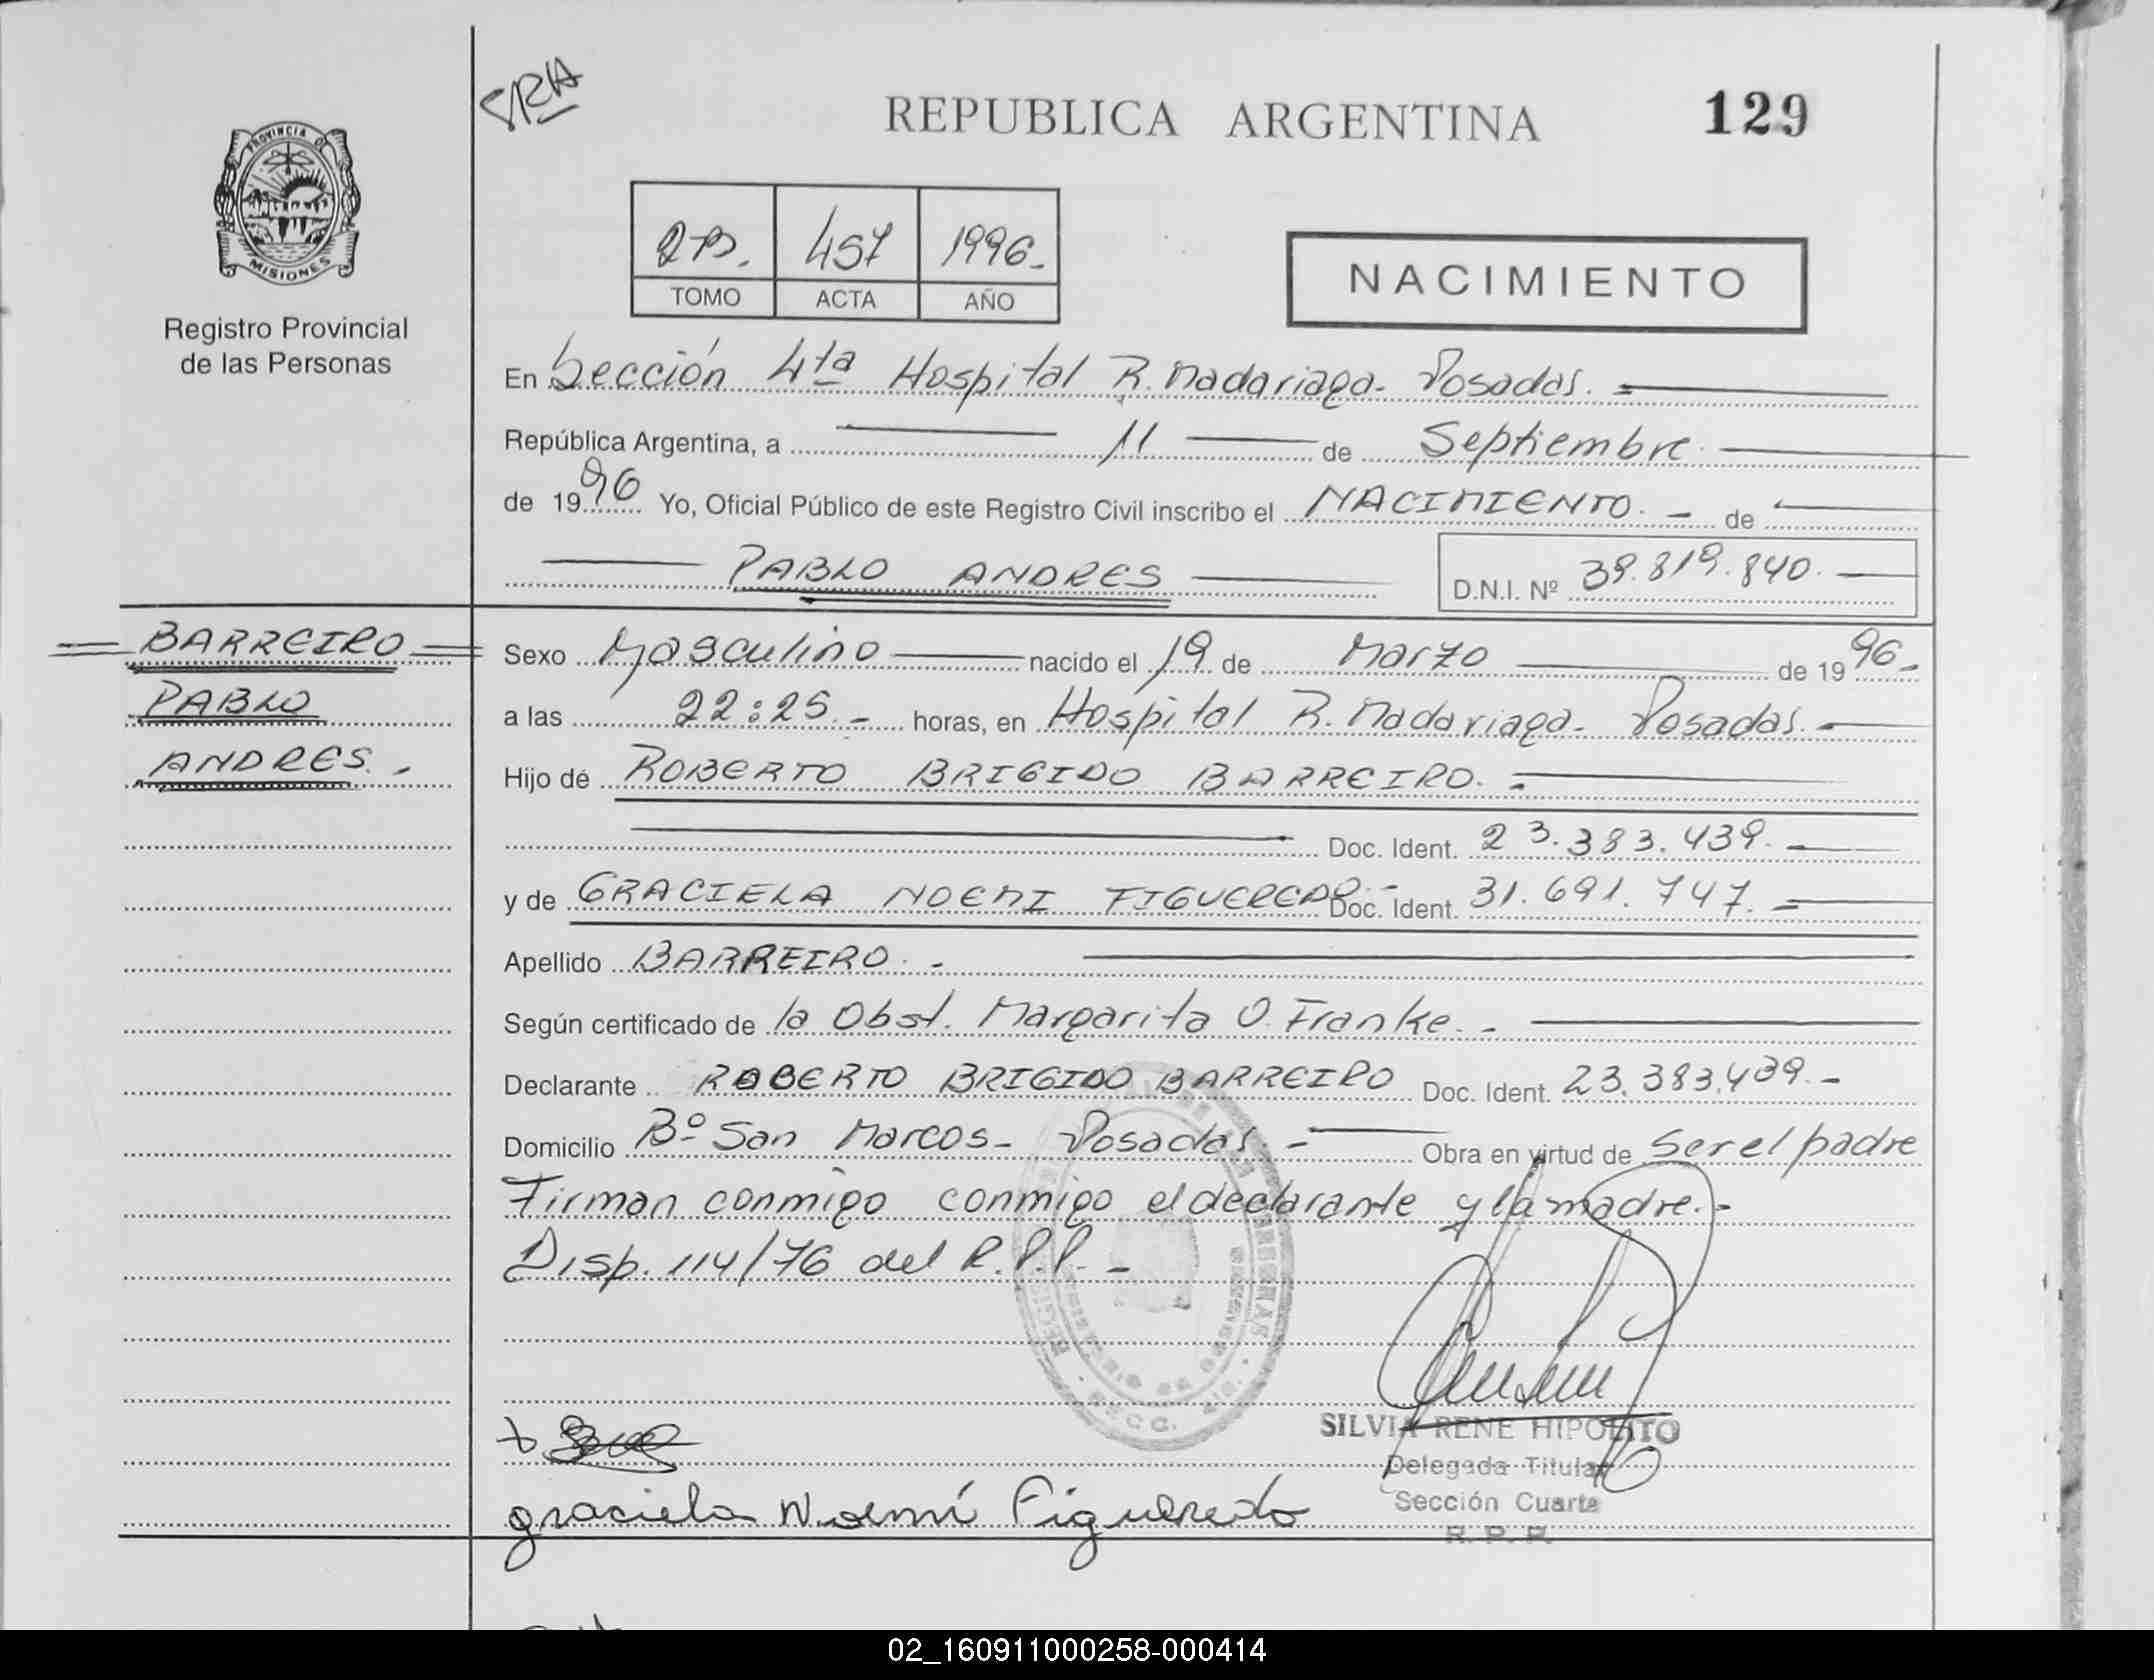 REPUBLICA ARGENTINA
129
PROVINCIA DE
MISIONES
Registro Provincial
de las Personas
457 1996.-
TOMO ACTA AÑO
NACIMIENTO
En Sección 4ta Hospital R. Madariaga- Posadas.=
República Argentina, a 11 de Septiembre.
de 1996 Yo, Oficial Público de este Registro Civil inscribo el NACIMIENTO.- de
PABLO ANDRES D.N.I. Nº 39.819.840.-
BARREIRO
PABLO
ANDRES.-
Sexo Masculino nacido el 19 de Marzo de 1996.-
a las 22:25.- horas, en Hospital R. Madariaga- Posadas.-
Hijo de ROBERTO BRIGIDO BARREIRO.=
Doc. Ident. 23.383.439.-
y de GRACIELA NOEMI FIGUEREDO.- Doc. Ident. 31.691.747.=
Apellido BARREIRO.-
Según certificado de la Obst. Margarita O. Franke.-
Declarante ROBERTO BRIGIDO BARREIRO Doc. Ident. 23.383.439.-
Domicilio Bº San Marcos- Posadas.- Obra en virtud de Ser el padre
Firman conmigo conmigo el declarante y la madre.-
Disp. 114/76 del R.P.P.-
SILVIA RENE HIPOLITO
Delegada Titular
Sección Cuarta
R. P. P.
graciela Noemí Figueredo
02_160911000258-000414